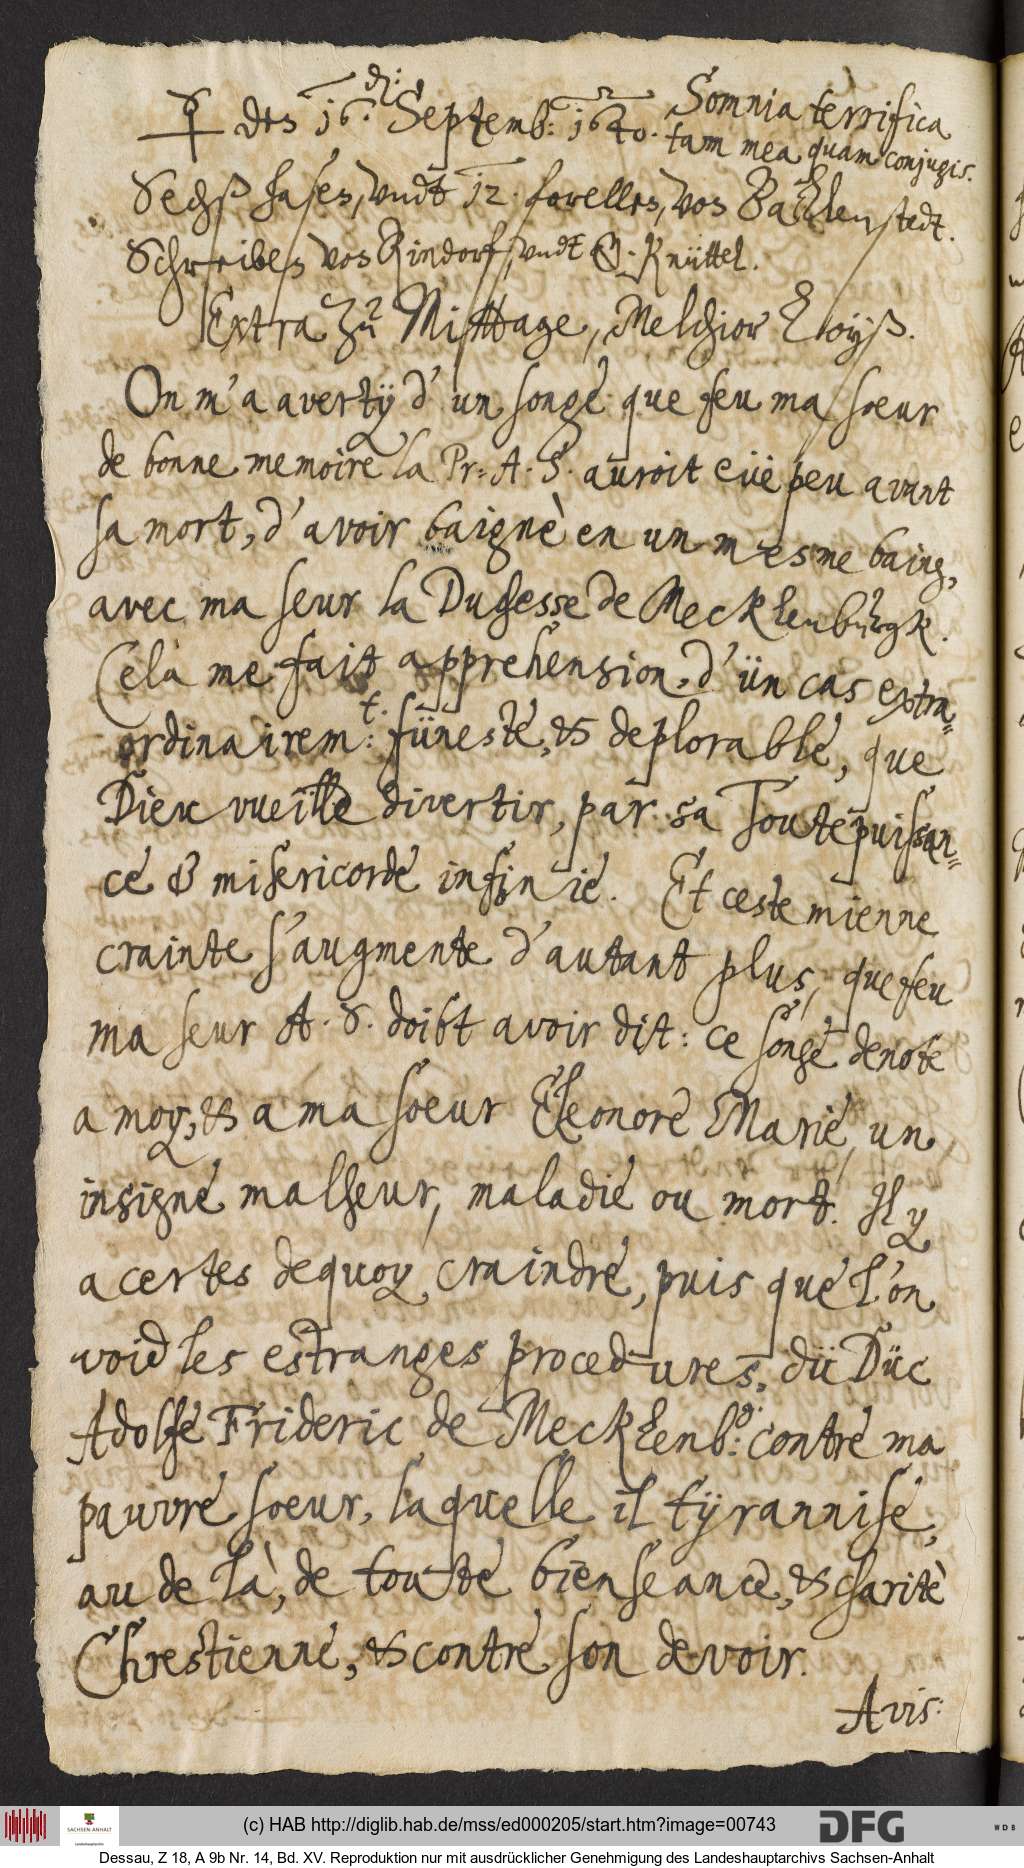 ☿ den 16. d:. Septemb: 1640. Somnia terrifica
tam mea quam conjugis.
Sechß hasen, vndt 12. forellen, von Ballenstedt.
Schreiben von Rindorf, vndt G. Knüttel.
Extra zu Mittage, Melchior Loyß.
On m'a avertÿ d'un songe que feu ma soeur
de bonne memoire la Pr: A. S. auroit eüe peu avant
sa mort, d'avoir baignè en un mesme baing,
avec ma seur la Duchesse de Mecklenburgk.
Cela me fait apprehension, d'ün cas extra-
ordinairem:t. füneste, & deplorable, que
Dieu vueille divertir, par sa Toutepuissan-
ce & misericorde infinie. Et ceste mienne
crainte s'augmente d'autant plus, que feu
ma seur A. S. doibt avoir dit: ce songe denote
a moy, & a ma soeur Eleonore Marie, un
insigne malheur, maladie ou mort. Il y
a certes dequoy craindre, puis que l'on
void les estranges procedures, dü Düc
Adolfe Frideric de Mecklenb:g. contre ma
pauvre soeur, laquelle il tÿrannise,
au de là, de toute bienseance, & charitè
Chrestienne, & contre son devoir.
Avis:
(c) HAB http://diglib.hab.de/mss/ed000205/start.htm?image=00743
SACHSEN-ANHALT
DFG
WDB
Dessau, Z 18, A 9b Nr. 14, Bd. XV. Reproduktion nur mit ausdrücklicher Genehmigung des Landeshauptarchivs Sachsen-Anhalt